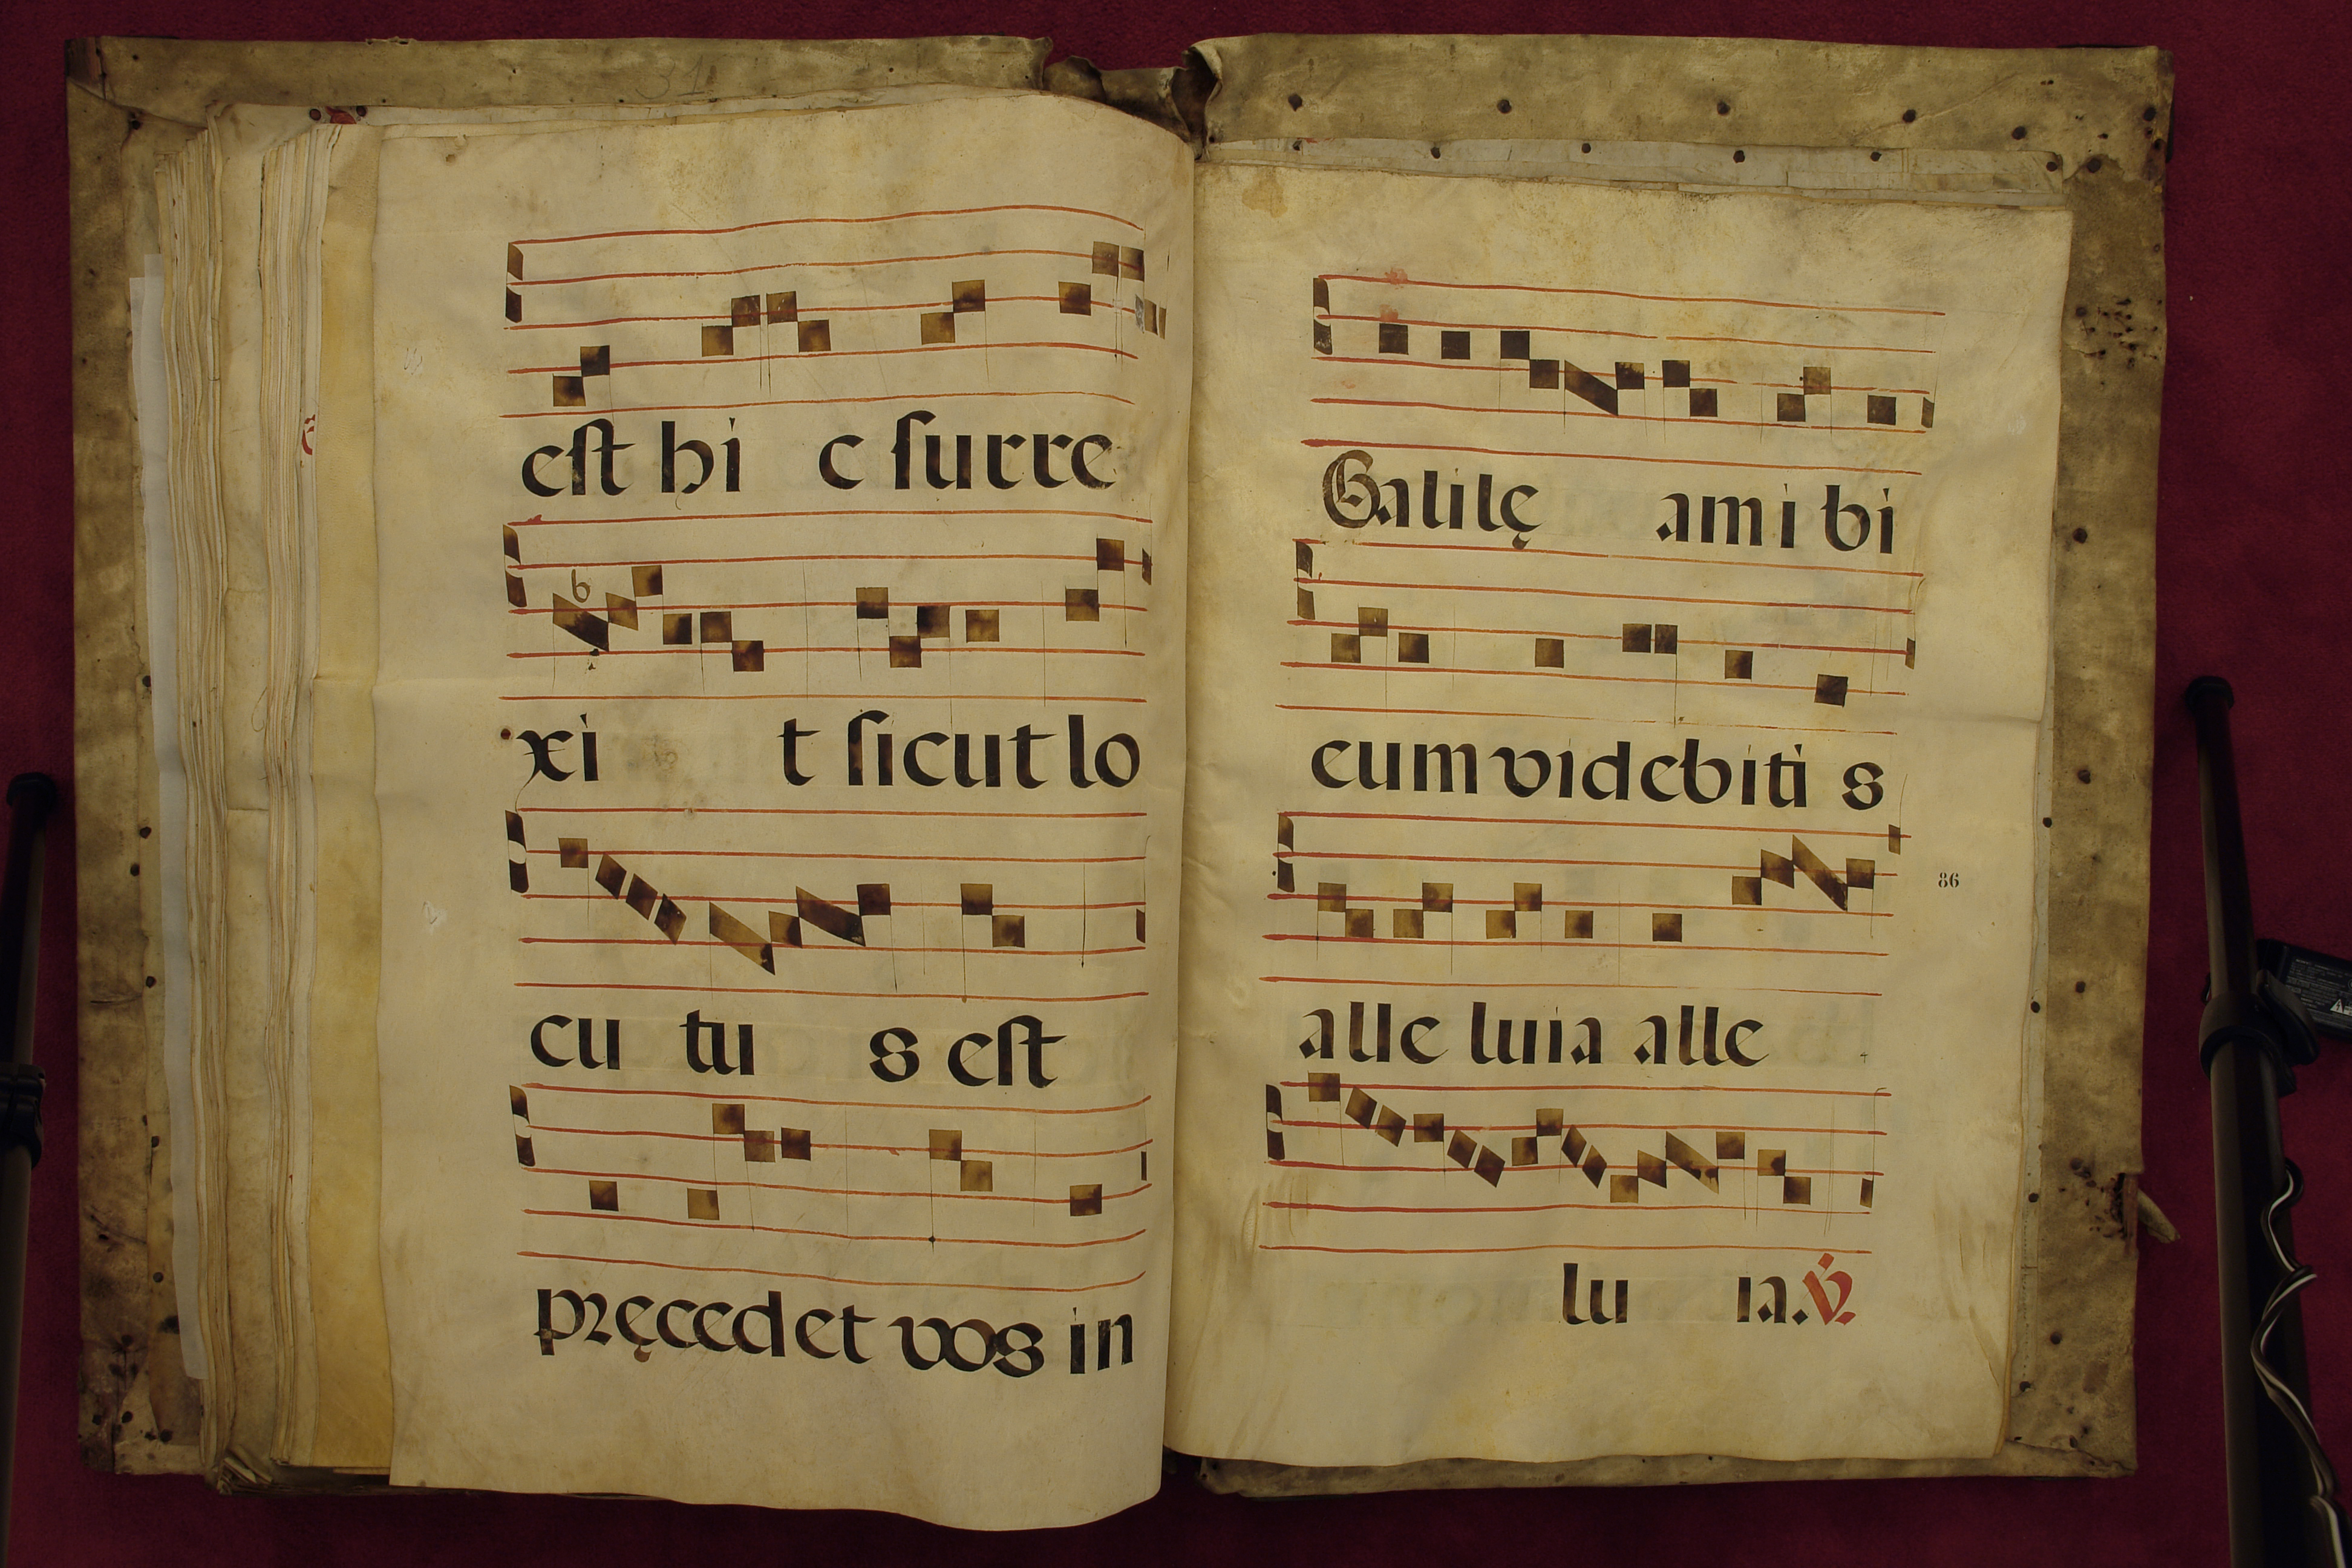 31
est hi c surre
xi t sicut lo
cu tu s est
pręcedet vos in
Galilę am i bi
eum videbiti s
86
alle luia alle
lu ia. ℣.